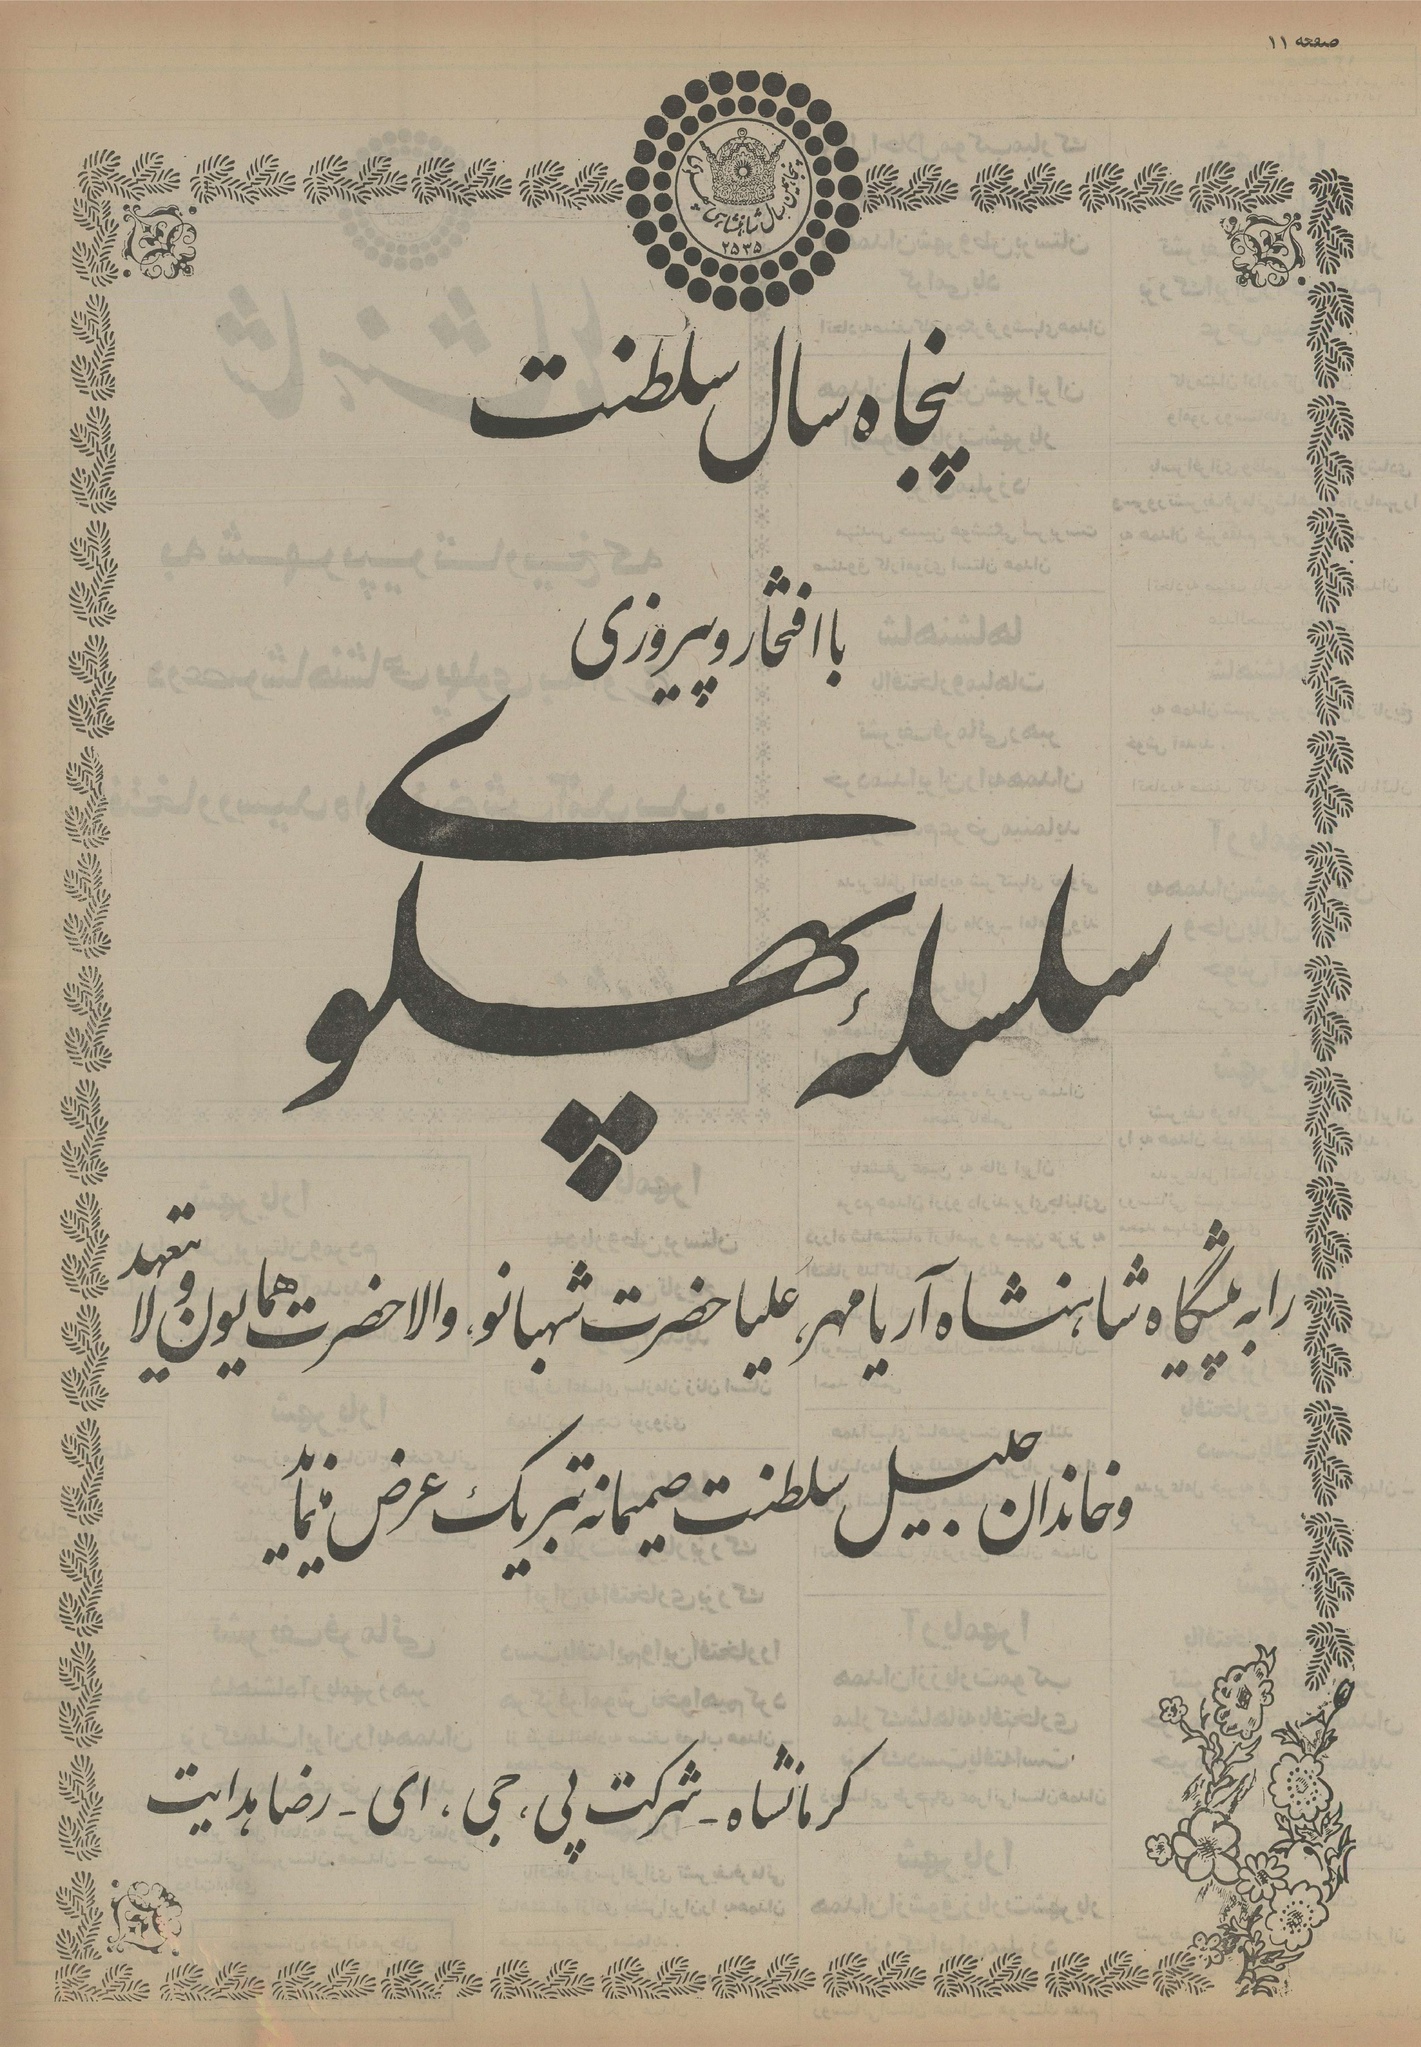 صفحه ۱۱
پنجاهمین سال شاهنشاهی پهلوی
۲۵۳۵
پنجاه سال سلطنت
با افتخار و پیروزی
سلسلهٔ پهلوی
را به پیشگاه شاهنشاه آریامهر، علیاحضرت شهبانو، والاحضرت همایون ولایتعهد
و خاندان جلیل سلطنت صمیمانه تبریک عرض مینماید
کرمانشاه - شرکت پی، جی، ای - رضا هدایت